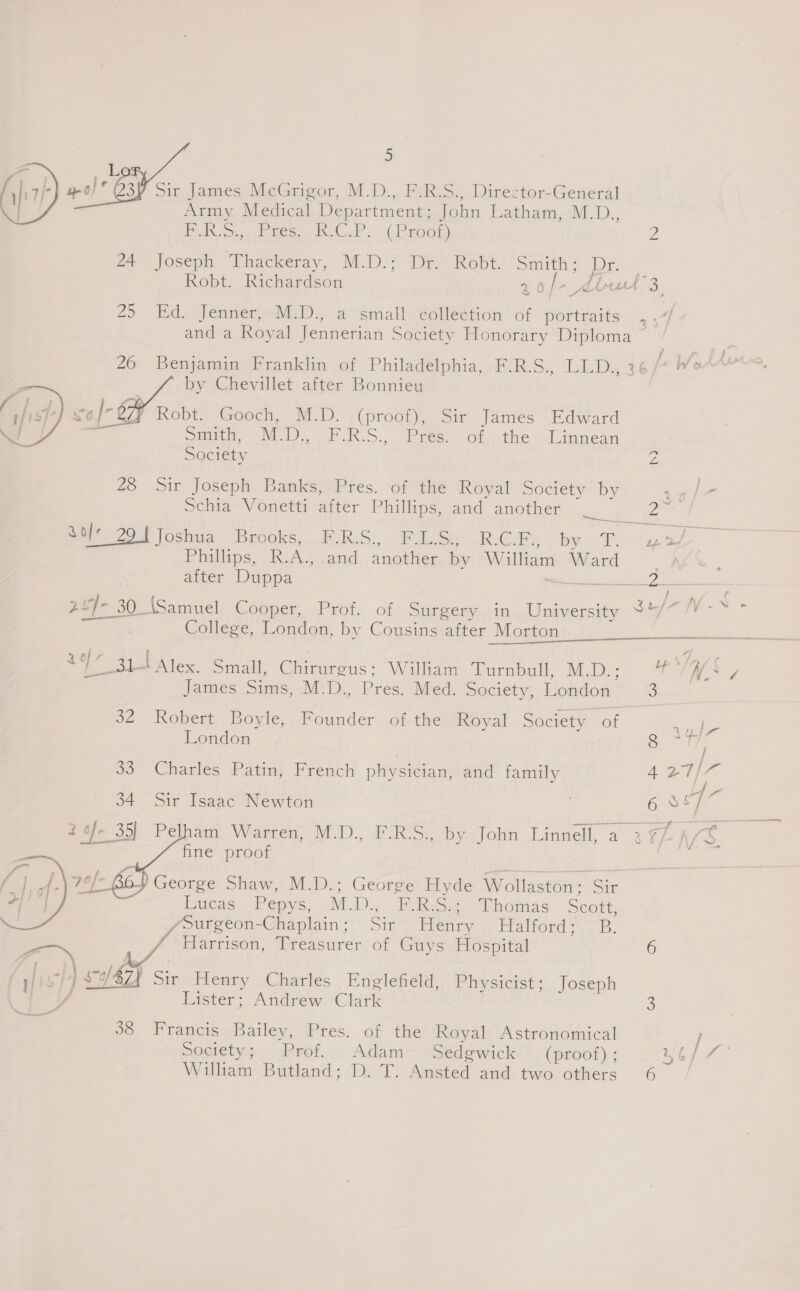 5
Lot
(1/17/-) 40/- 23 Sir James McGrigor, M.D., F.R.S., Director-General
Army Medical Department; John Latham, M.D.,
F.R.S., Pres. R.C.P. (Proof) 2
24 Joseph Thackeray, M.D.; Dr. Robt. Smith; Dr.
Robt. Richardson 20/- 3
25 Ed. Jenner, M.D., a small collection of portraits
and a Royal Jennerian Society Honorary Diploma
26 Benjamin Franklin of Philadelphia, F.R.S., LL.D., 36/-
by Chevillet after Bonnieu
27 Robt. Gooch, M.D. (proof), Sir James Edward
Smith, M.D., F.R.S., Pres. of the Linnean
Society 2
28 Sir Joseph Banks, Pres. of the Royal Society by
Schia Vonetti after Phillips, and another 2
30/- 29 Joshua Brooks, F.R.S., F.L.S., R.C.F., by T.
Phillips, R.A., and another by William Ward
after Duppa 2
25/- 30 Samuel Cooper, Prof. of Surgery in University
College, London, by Cousins after Morton
20/- 31 Alex. Small, Chirurgus; William Turnbull, M.D.;
James Sims, M.D., Pres. Med. Society, London 3
32 Robert Boyle, Founder of the Royal Society of
London 8 34/-
33 Charles Patin, French physician, and family 4 27/-
34 Sir Isaac Newton 6 35/-
20/- 35 Pelham Warren, M.D., F.R.S., by John Linnell, a
fine proof
70/- 36 George Shaw, M.D.; George Hyde Wollaston; Sir
Lucas Pepys, M.D., F.R.S.; Thomas Scott,
Surgeon-Chaplain; Sir Henry Halford; B.
Harrison, Treasurer of Guys Hospital 6
37 Sir Henry Charles Englefield, Physicist; Joseph
Lister; Andrew Clark 3
38 Francis Bailey, Pres. of the Royal Astronomical
Society; Prof. Adam Sedgwick (proof);
William Butland; D. T. Ansted and two others 6